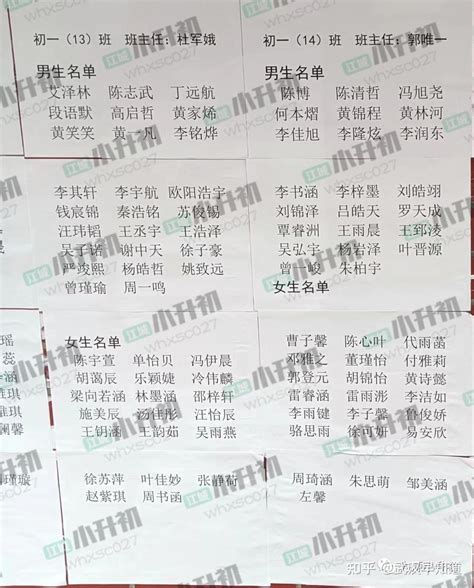 初一（13）班 班主任：杜军娥
男生名单
艾泽林 陈志武 丁远航
段语默 高启哲 黄家烯
黄笑笑 黄一凡 李铭烨
李其轩 李宇航 欧阳浩宇
钱宸锦 秦浩铭 苏俊锡
汪玮韬 王丞宇 王浩泽
吴子诺 谢中天 徐子豪
严竣熙 杨皓哲 姚致远
曾瑾瑜 周一鸣
女生名单
陈宇萱 单怡贝 冯伊晨
胡蔼辰 乐颖婕 冷伟麟
梁向若涵 林墨涵 邵梓轩
施美辰 汤佳彤 汪怡辰
王钥涵 王韵茹 吴雨燕
徐苏萍 叶佳妙 张静荷
赵紫琪 周书涵
初一（14）班 班主任：郭唯一
男生名单
陈博 陈清哲 冯旭尧
何本熠 黄锦程 黄林河
李佳旭 李隆炫 李润东
李书涵 李梓墨 刘皓翊
刘锦泽 吕皓天 罗天成
覃睿洲 王雨晨 王郅淩
吴弘宇 杨岩泽 叶晋源
曾一峻 朱柏宇
女生名单
曹子馨 陈心叶 代雨菡
邓雅之 董瑾怡 付雅莉
郭登元 胡锦怡 黄诗懿
雷睿涵 雷雨浵 李洁如
李雨键 李子馨 鲁俊娇
骆思雨 徐可妍 易安欣
周琦涵 朱思萌 邹美涵
左馨
瑶
蕊
涵
琪
琪
馨
瑾璇
江城 小升初
whxsc027
知乎